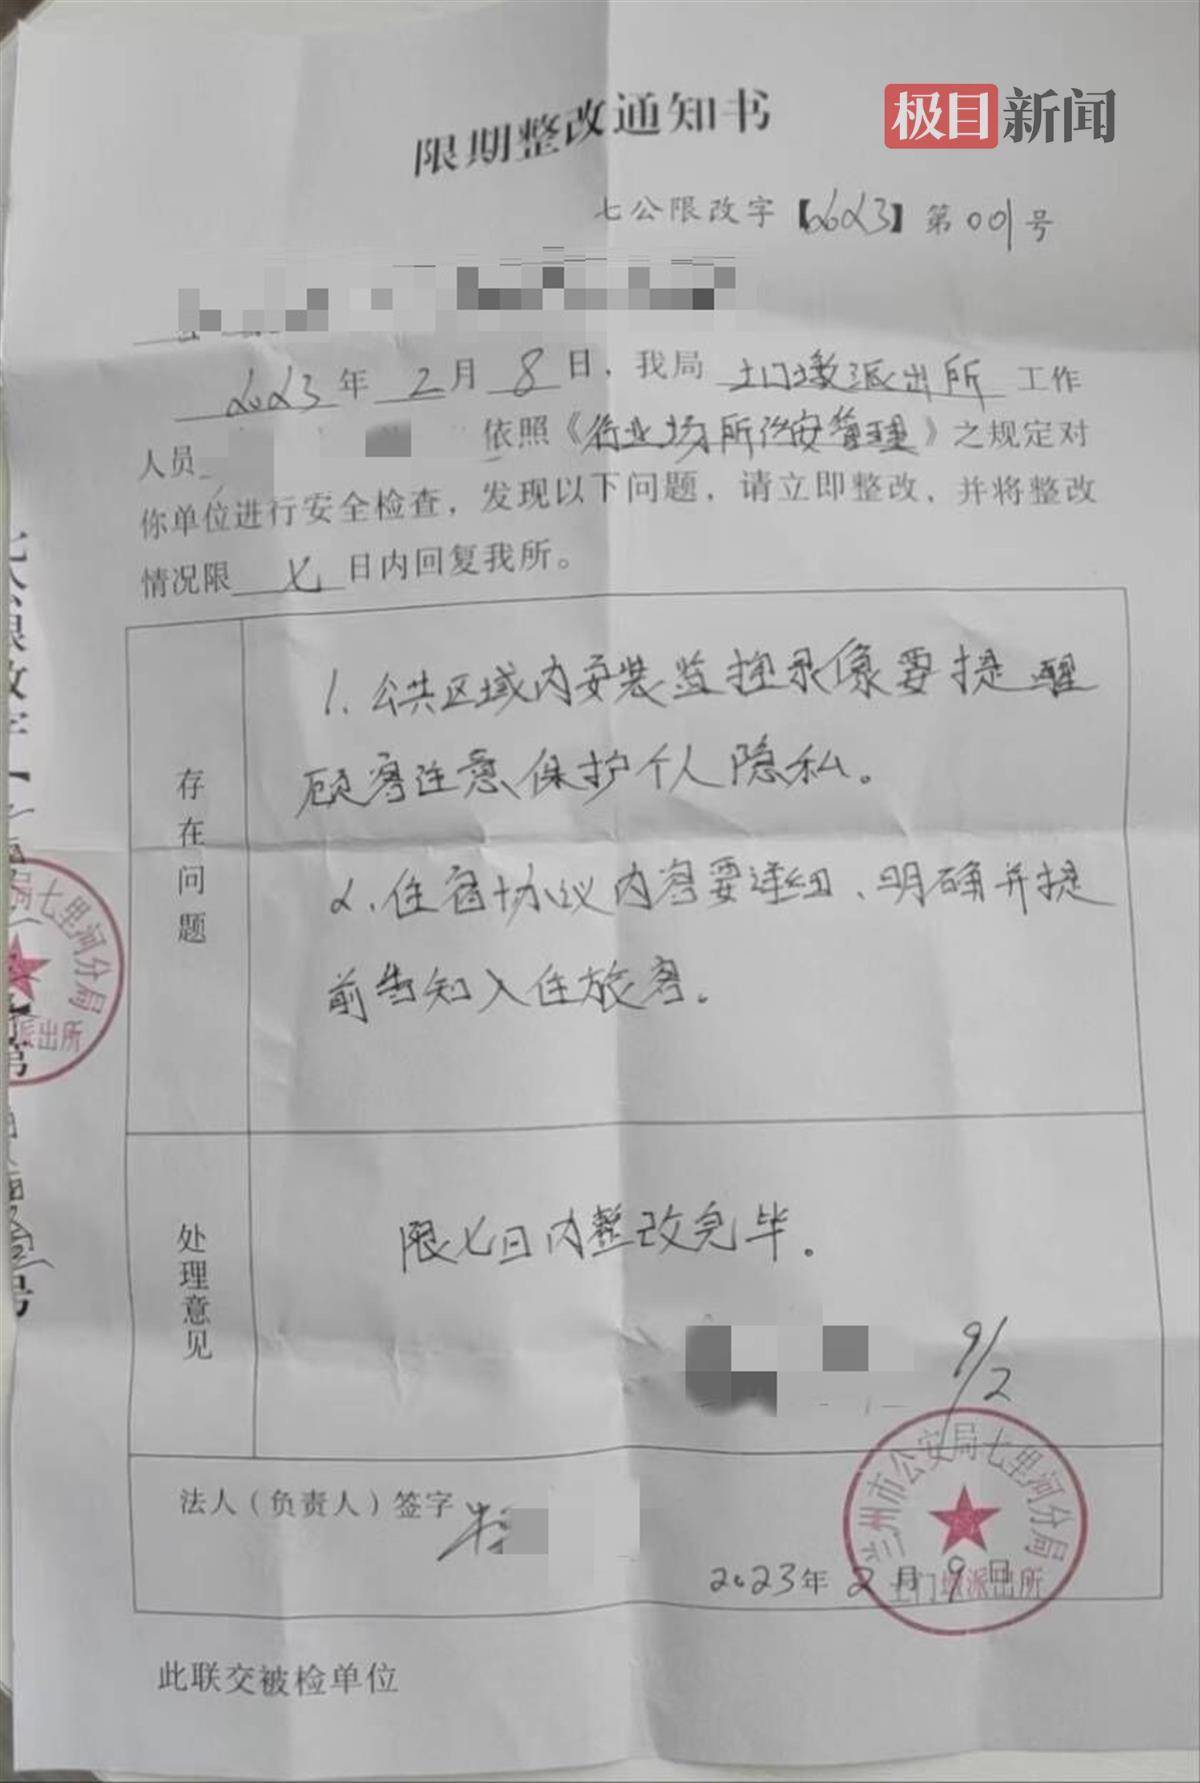 极目新闻
限期整改通知书
七公限改字【2023】第001号
2023年2月8日，我局土门墩派出所工作
人员 依照《行业场所治安管理》之规定对
你单位进行安全检查，发现以下问题，请立即整改，并将整改
情况限七日内回复我所。
存在问题
1.公共区域内安装监控录像要提醒
顾客注意保护个人隐私。
2.住宿协议内容要详细、明确并提
前告知入住旅客。
处理意见
限七日内整改完毕。
9/2
法人（负责人）签字
兰州市公安局七里河分局
土门墩派出所
2023年2月9日
此联交被检单位
七公限改字【
局七里河分局
派出所
第
号